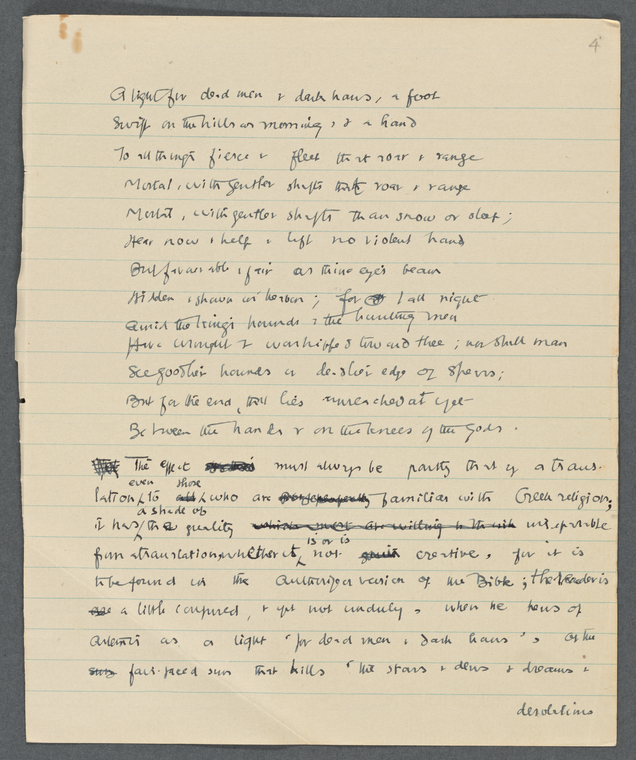 4
A light for dead men & dark hours, a foot
Swift on the hills as morning, & a hand
To all things fierce & fleet that roar & range
Mortal, with gentler shafts that roar & range
Mortal, with gentler shafts than snow or sleet;
Hear now & help & lift no violent hand
But favourable & fair as thine eye's beam
Hidden & shown in heaven; for I all night
Amid the king's hounds & the hunting men
Have wrought & worshipped toward thee; nor shall man
See goodlier hounds or deadlier edge of spears;
But for the end, that lies unreached at yet
Between the hands & on the knees of the Gods.
The effect must always be partly that of a trans-
lation, even to those who are familiar with Greek religion;
it has a shade of the quality inseparable
from a translation, whether it is or is not creative, for it is
to be found in the Authorized version of the Bible; the reader is
a little confused, & yet not unduly, when he hears of
Artemis as a light 'for dead men & dark hours', or the
fair-faced sun that kills 'the stars & dews & dreams &
desolations